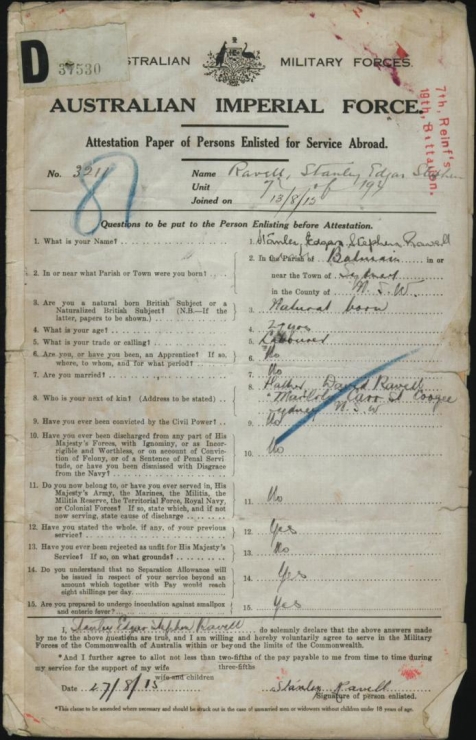 D 37530
AUSTRALIAN MILITARY FORCES.
AUSTRALIAN IMPERIAL FORCE.
7th. Reinf's
19th. Battalion.
Attestation Paper of Persons Enlisted for Service Abroad.
No. 3211 Name Ravell, Stanley Edgar Stephen
Unit 7 of 19th
Joined on 13/8/15
87
Questions to be put to the Person Enlisting before Attestation.
1. What is your Name? 1. Stanley Edgar Stephen Ravell
2. In or near what Parish or Town were you born? 2. In the Parish of Balmain in or
near the Town of Sydney
in the County of N.S.W.
3. Are you a natural born British Subject or a
Naturalized British Subject? (N.B.—If the
latter, papers to be shown.) 3. Natural born
4. What is your age? 4.
5. What is your trade or calling? 5. Labourer
6. Are you, or have you been, an Apprentice? If so,
where, to whom, and for what period? 6. No
7. Are you married? 7. No
8. Who is your next of kin? (Address to be stated) 8. Father, David Ravell
Carr St Coogee
Sydney N.S.W
9. Have you ever been convicted by the Civil Power? 9. No
10. Have you ever been discharged from any part of His
Majesty's Forces, with Ignominy, or as Incor-
rigible and Worthless, or on account of Convic-
tion of Felony, or of a Sentence of Penal Servi-
tude, or have you been dismissed with Disgrace
from the Navy? 10. No
11. Do you now belong to, or have you ever served in, His
Majesty's Army, the Marines, the Militia, the
Militia Reserve, the Territorial Force, Royal Navy,
or Colonial Forces? If so, state which, and if not
now serving, state cause of discharge 11. No
12. Have you stated the whole, if any, of your previous
service? 12. Yes
13. Have you ever been rejected as unfit for His Majesty's
Service? If so, on what grounds? 13. No
14. Do you understand that no Separation Allowance will
be issued in respect of your service beyond an
amount which together with Pay would reach
eight shillings per day. 14. Yes
15. Are you prepared to undergo inoculation against smallpox
and enteric fever? 15. Yes
I, Stanley Edgar Stephen Ravell do solemnly declare that the above answers made
by me to the above questions are true, and I am willing and hereby voluntarily agree to serve in the Military
Forces of the Commonwealth of Australia within or beyond the limits of the Commonwealth.
*And I further agree to allot not less than two-fifths of the pay payable to me from time to time during
three-fifths
my service for the support of my wife
wife and children
Date 27/8/15 Stanley Ravell
Signature of person enlisted.
*This clause to be amended where necessary and should be struck out in the case of unmarried men or widowers without children under 18 years of age.